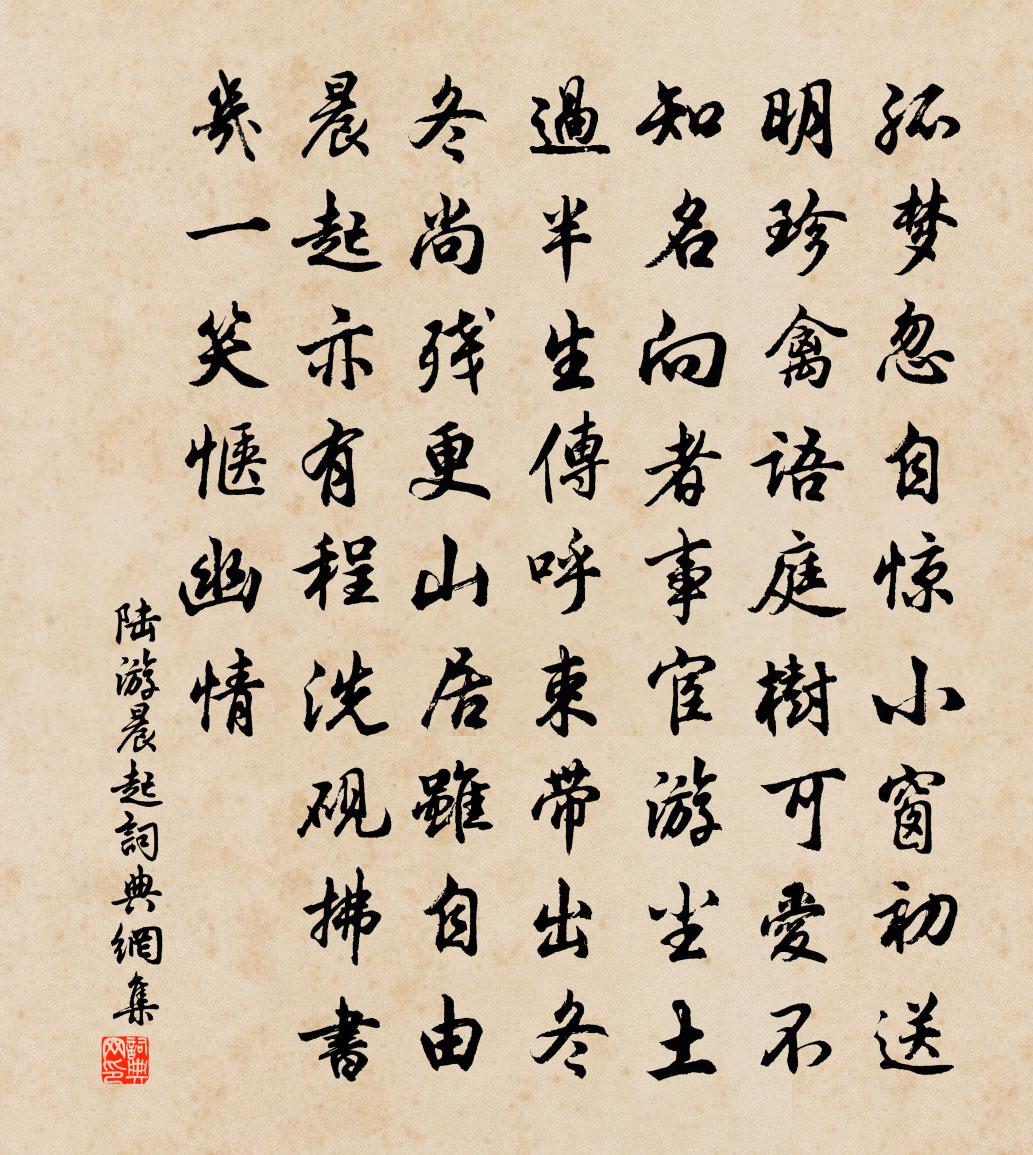 孤梦忽自惊小窗初送
明珍禽语庭樹可愛不
知名向者事宦游尘土
過半生傳呼束带出冬
冬尚残更山居雖自由
晨起亦有程洗砚拂書
幾一笑惬幽情
陆游晨起詞典網集
詞典网印